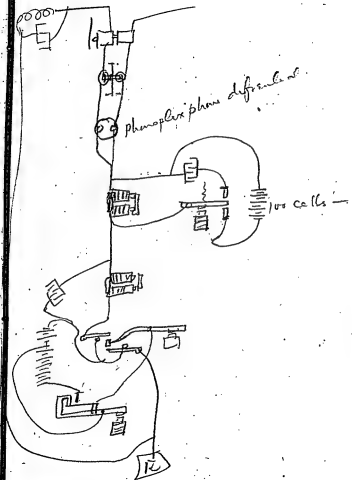 phonoplex phone differential
100 cells –
R